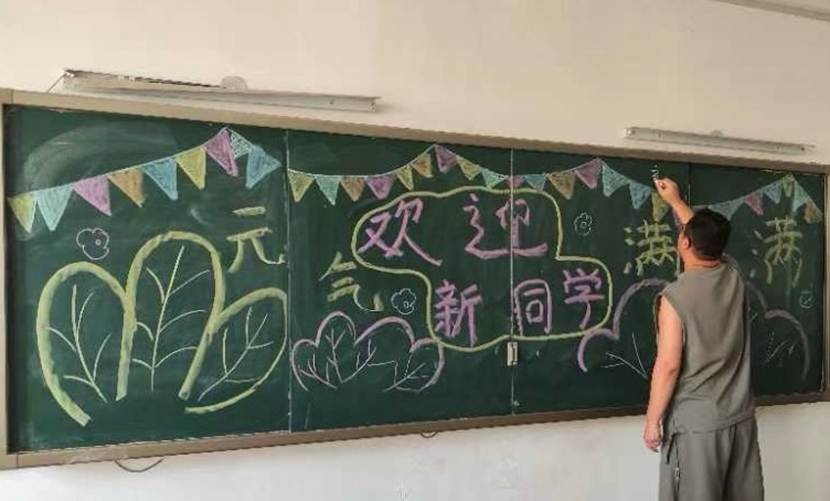 元气满满
欢迎
新同学